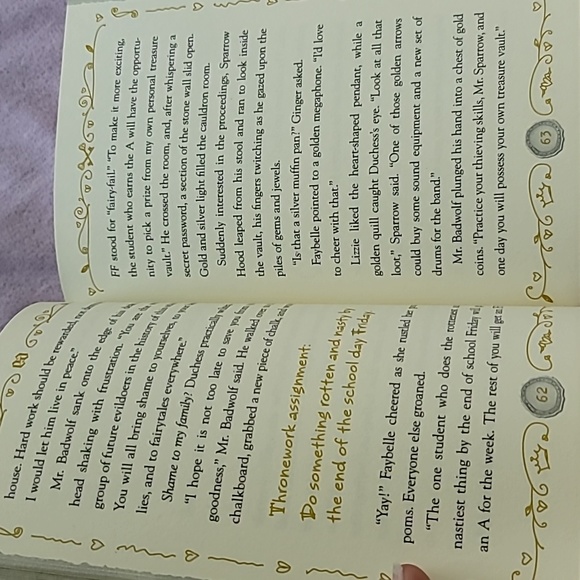 house. Hard work should be rewarded,
I would let him live in peace."
Mr. Badwolf sank onto the edge of his
head shaking with frustration. "You are the
group of future evildoers in the history of
You will all bring shame to yourselves, to your
lies, and to fairytales everywhere."
Shame to my family? Duchess practically
"I hope it is not too late to save you from
goodness," Mr. Badwolf said. He walked
chalkboard, grabbed a new piece of chalk, and
Thronework assignment:
Do something rotten and nasty by
the end of the school day Friday.
"Yay!" Faybelle cheered as she rustled her
poms. Everyone else groaned.
"The one student who does the rottenest,
nastiest thing by the end of school Friday will
an A for the week. The rest of you will get
62
FF stood for "fairy-fail." "To make it more exciting,
the student who earns the A will have the opportu-
nity to pick a prize from my own personal treasure
vault." He crossed the room, and, after whispering a
secret password, a section of the stone wall slid open.
Gold and silver light filled the cauldron room.
Suddenly interested in the proceedings, Sparrow
Hood leaped from his stool and ran to look inside
the vault, his fingers twitching as he gazed upon the
piles of gems and jewels.
"Is that a silver muffin pan?" Ginger asked.
Faybelle pointed to a golden megaphone. "I'd love
to cheer with that."
Lizzie liked the heart-shaped pendant, while a
golden quill caught Duchess's eye. "Look at all that
loot," Sparrow said. "One of those golden arrows
could buy some sound equipment and a new set of
drums for the band."
Mr. Badwolf plunged his hand into a chest of gold
coins. "Practice your thieving skills, Mr. Sparrow, and
one day you will possess your own treasure vault."
63